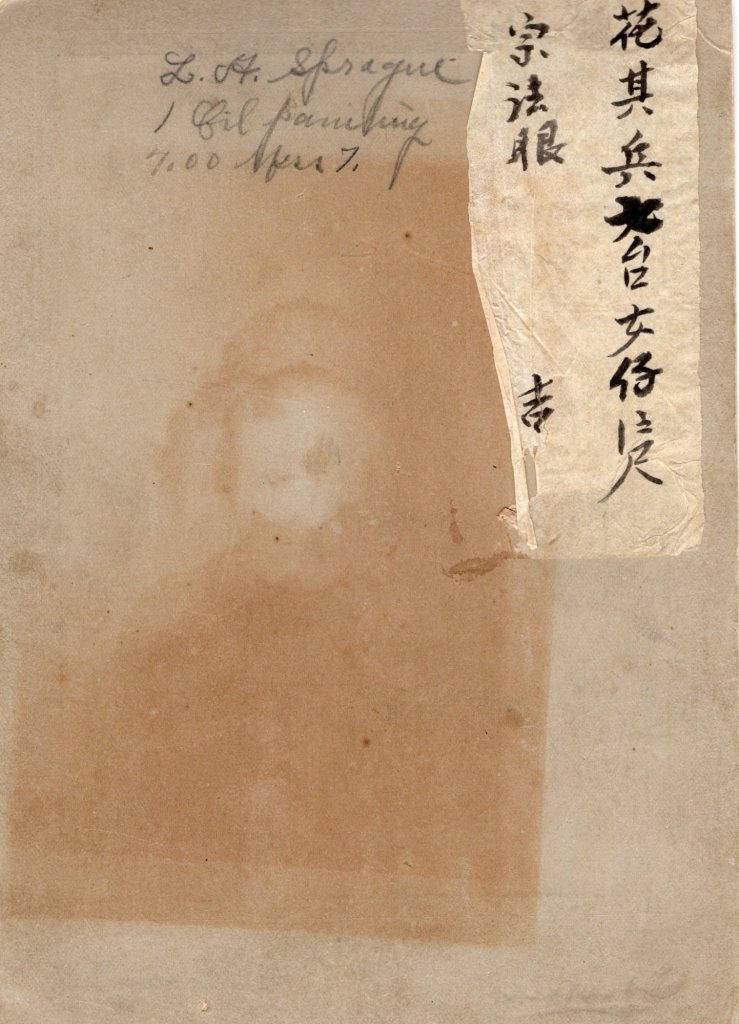 L. H. Sprague
1 Oil painting
7.00 less 7.
花其兵台女仔尺
宗法眼 吉